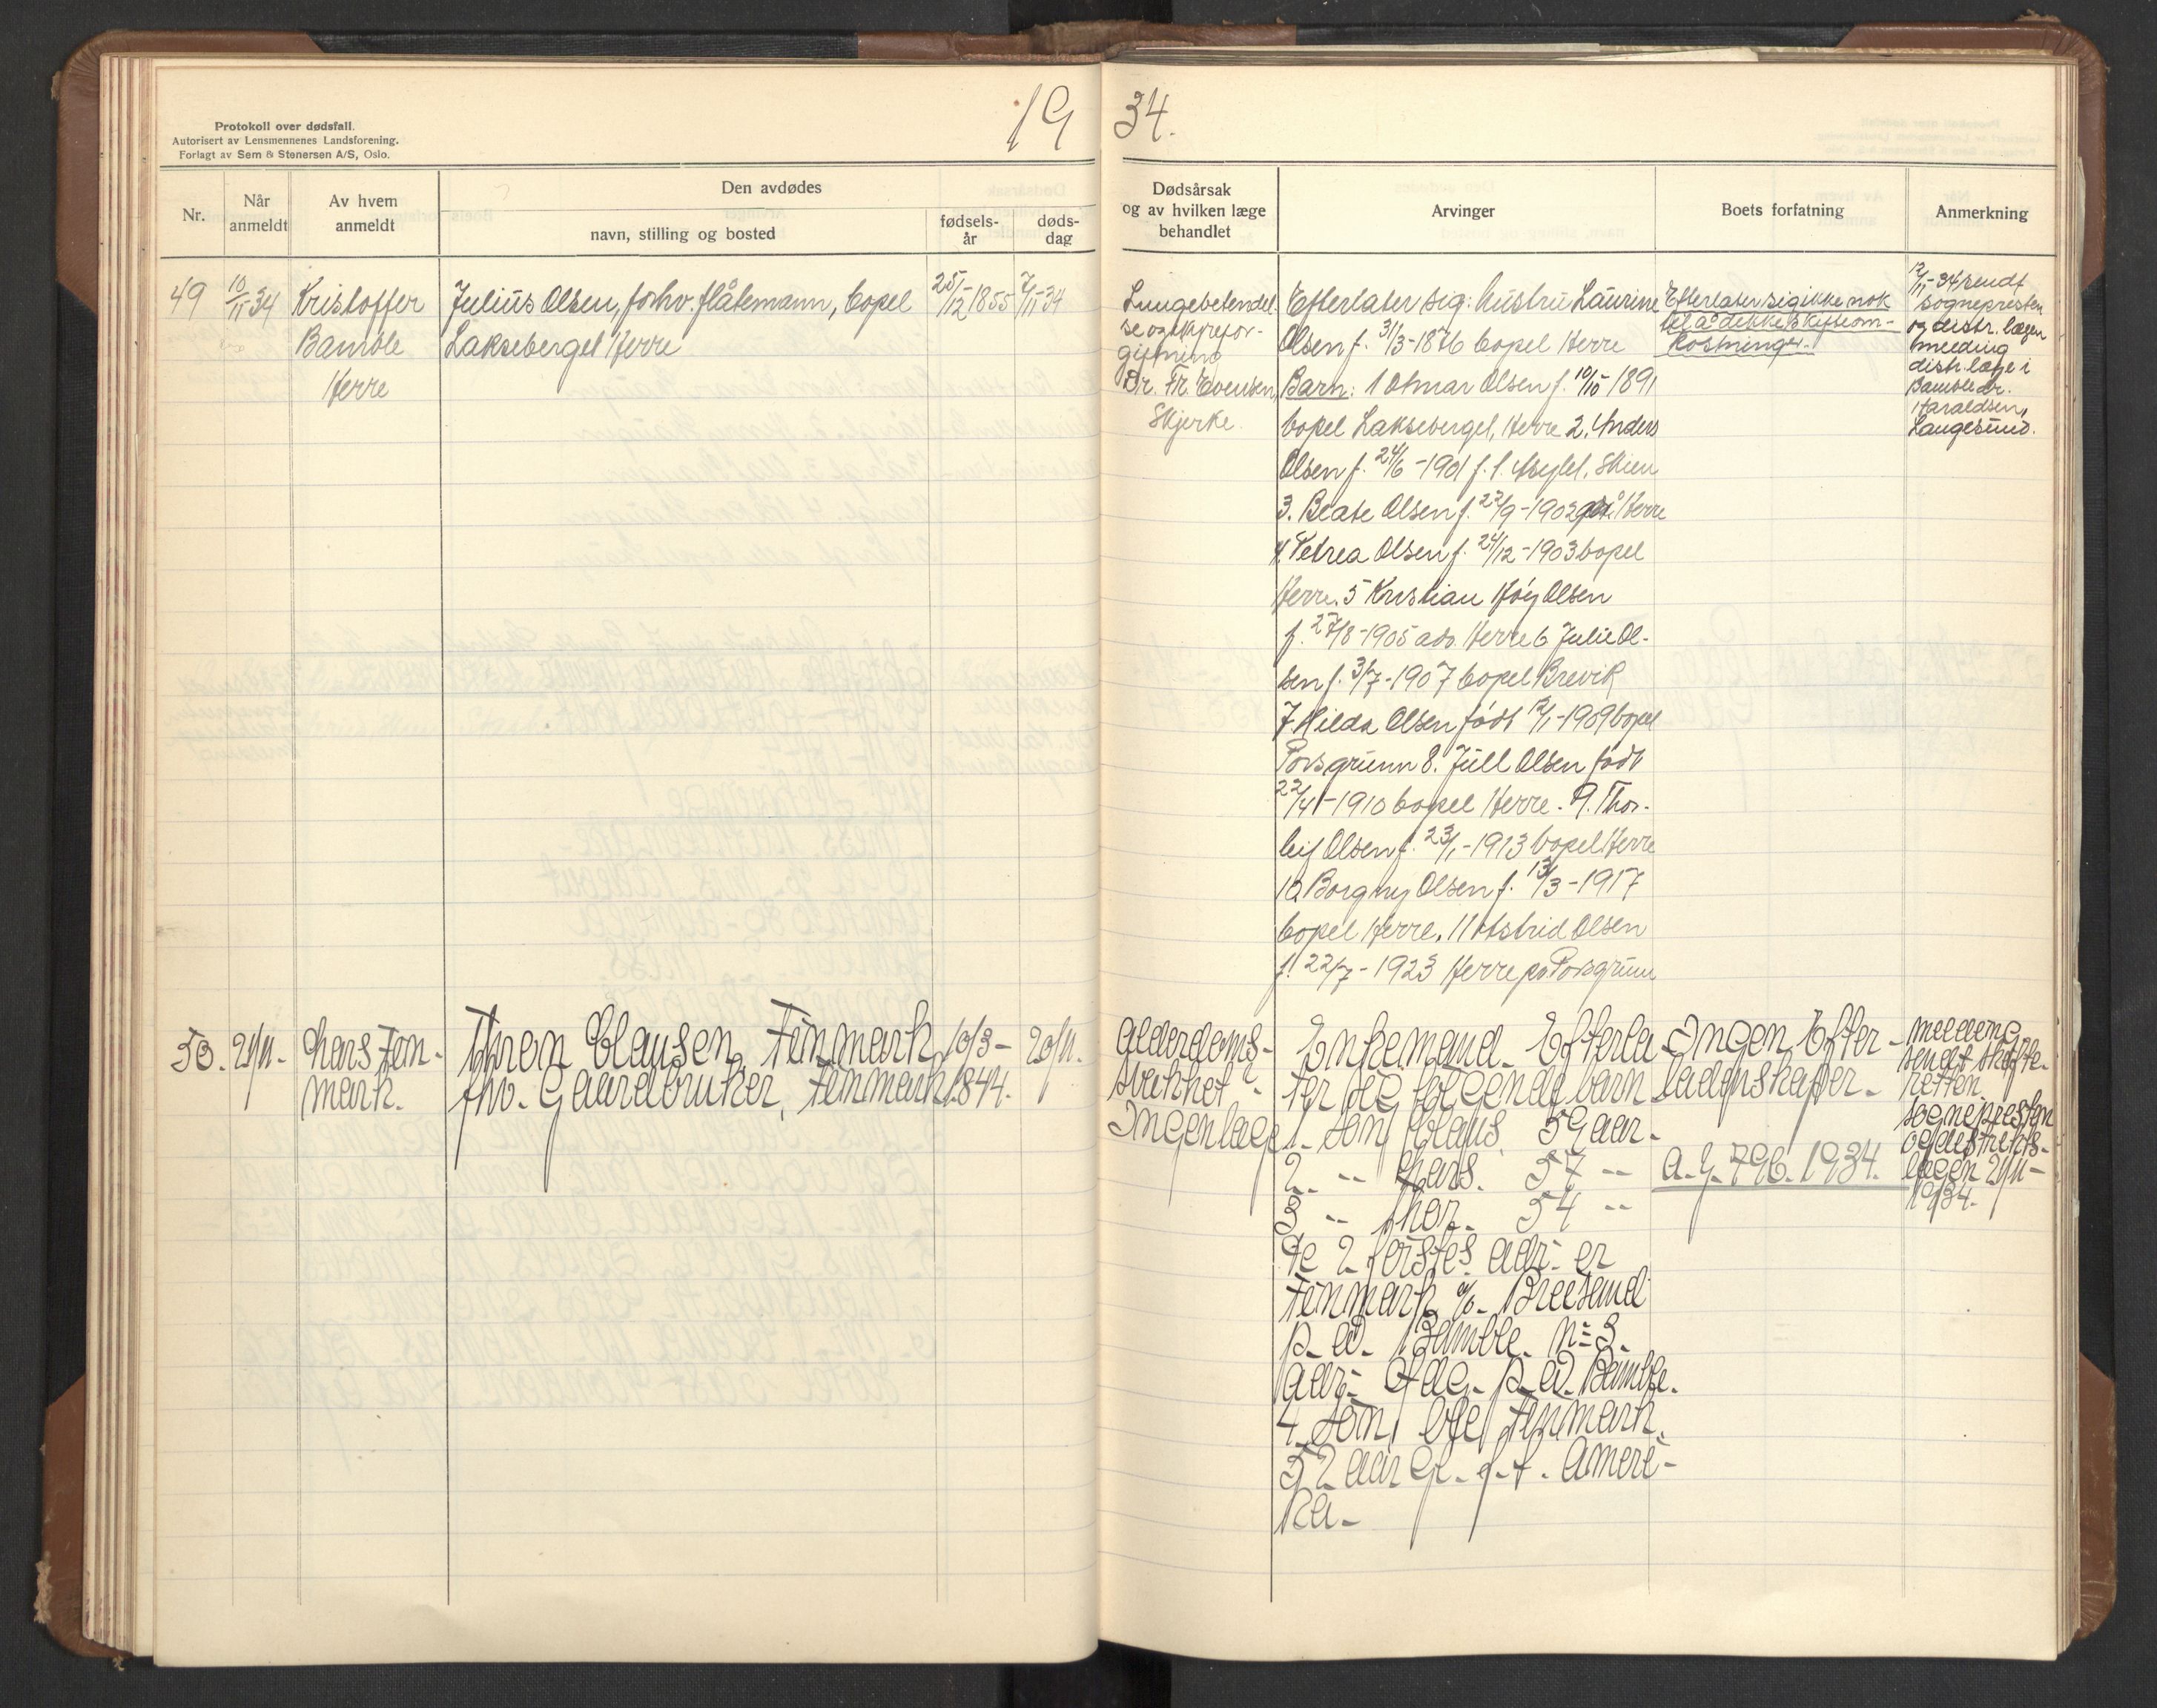 19 34.
Protokoll over dødsfall.
Autorisert av Lensmennenes Landsforening.
Forlagt av Sem & Stenersen A/S, Oslo.
Nr.
Når
anmeldt
Av hvem
anmeldt
Den avdødes
navn, stilling og bosted
fødsels-
år
døds-
dag
Dødsårsak
og av hvilken læge
behandlet
Arvinger
Boets forfatning
Anmerkning
49
10/11 34
Kristoffer
Bamble
Herre
Julius Olsen, forhv. flåtemann, bopel
Laksebergel Herre
25/12 1855
7/11 34
Lungebetendel-
se og
giftning
Dr. Fr. Evensen,
Skjerke
Efterlater sig: hustru Laurine
Olsen f. 31/3-1876 bopel Herre
Barn: 1 Otmar Olsen f. 10/10 1891
bopel Laksebergel, Herre 2. Anders
Olsen f. 24/6 -1901 f. t. Asylet, Skien
3. Beate Olsen f. 22/9-1902 Herre
4. Petrea Olsen f. 24/12-1903 bopel
Herre. 5 Kristian Høy Olsen
f. 27/8-1905 adr. Herre 6 Julie Ol-
sen f. 3/7-1907 bopel Brevik
7. Hilda Olsen født 12/1-1909 bopel
Porsgrunn 8. Jull Olsen født
22/4-1910 bopel Herre. 9. Thor-
leif Olsen f. 23/1-1913 bopel Herre
10. Borgny Olsen f. 13/3-1917
bopel Herre. 11 Astrid Olsen
f. 22/7-1923 Herre pr Porsgrunn
Efterlater sig ikke nok
til å dekke skifteom-
kostninger.
12/11-34 sendt
sognepresten
og distr. lægen
melding
distr. læge i
Bamble dr.
Haraldsen,
Langesund.
50.
21/11.
Lars Fin-
mark.
Thron Clausen, Finmark
fhv. Gaardbruker, Finmark
10/3-
1844.
20/11.
Alderdoms-
svakhet -
Ingen læge
Enkemand. Efterla-
ter sig følgende barn
1. Søn Claus. 59 aar.
2. -- Lars. 57 --
3 -- Thor. 54 --
De 2 førstes adr. er
Finmark
p. d. Bamble. N= 3.
adr. p. d. Bamble.
4. Søn Ole Finmark.
52 aar g. f. t. Ameri-
ka.
Ingen Efter-
ladenskaper.
A. J. 796. 1934.
Melding
sendt Skifte-
retten.
Sognepresten
og distrikts-
lægen 21/11-
1934.